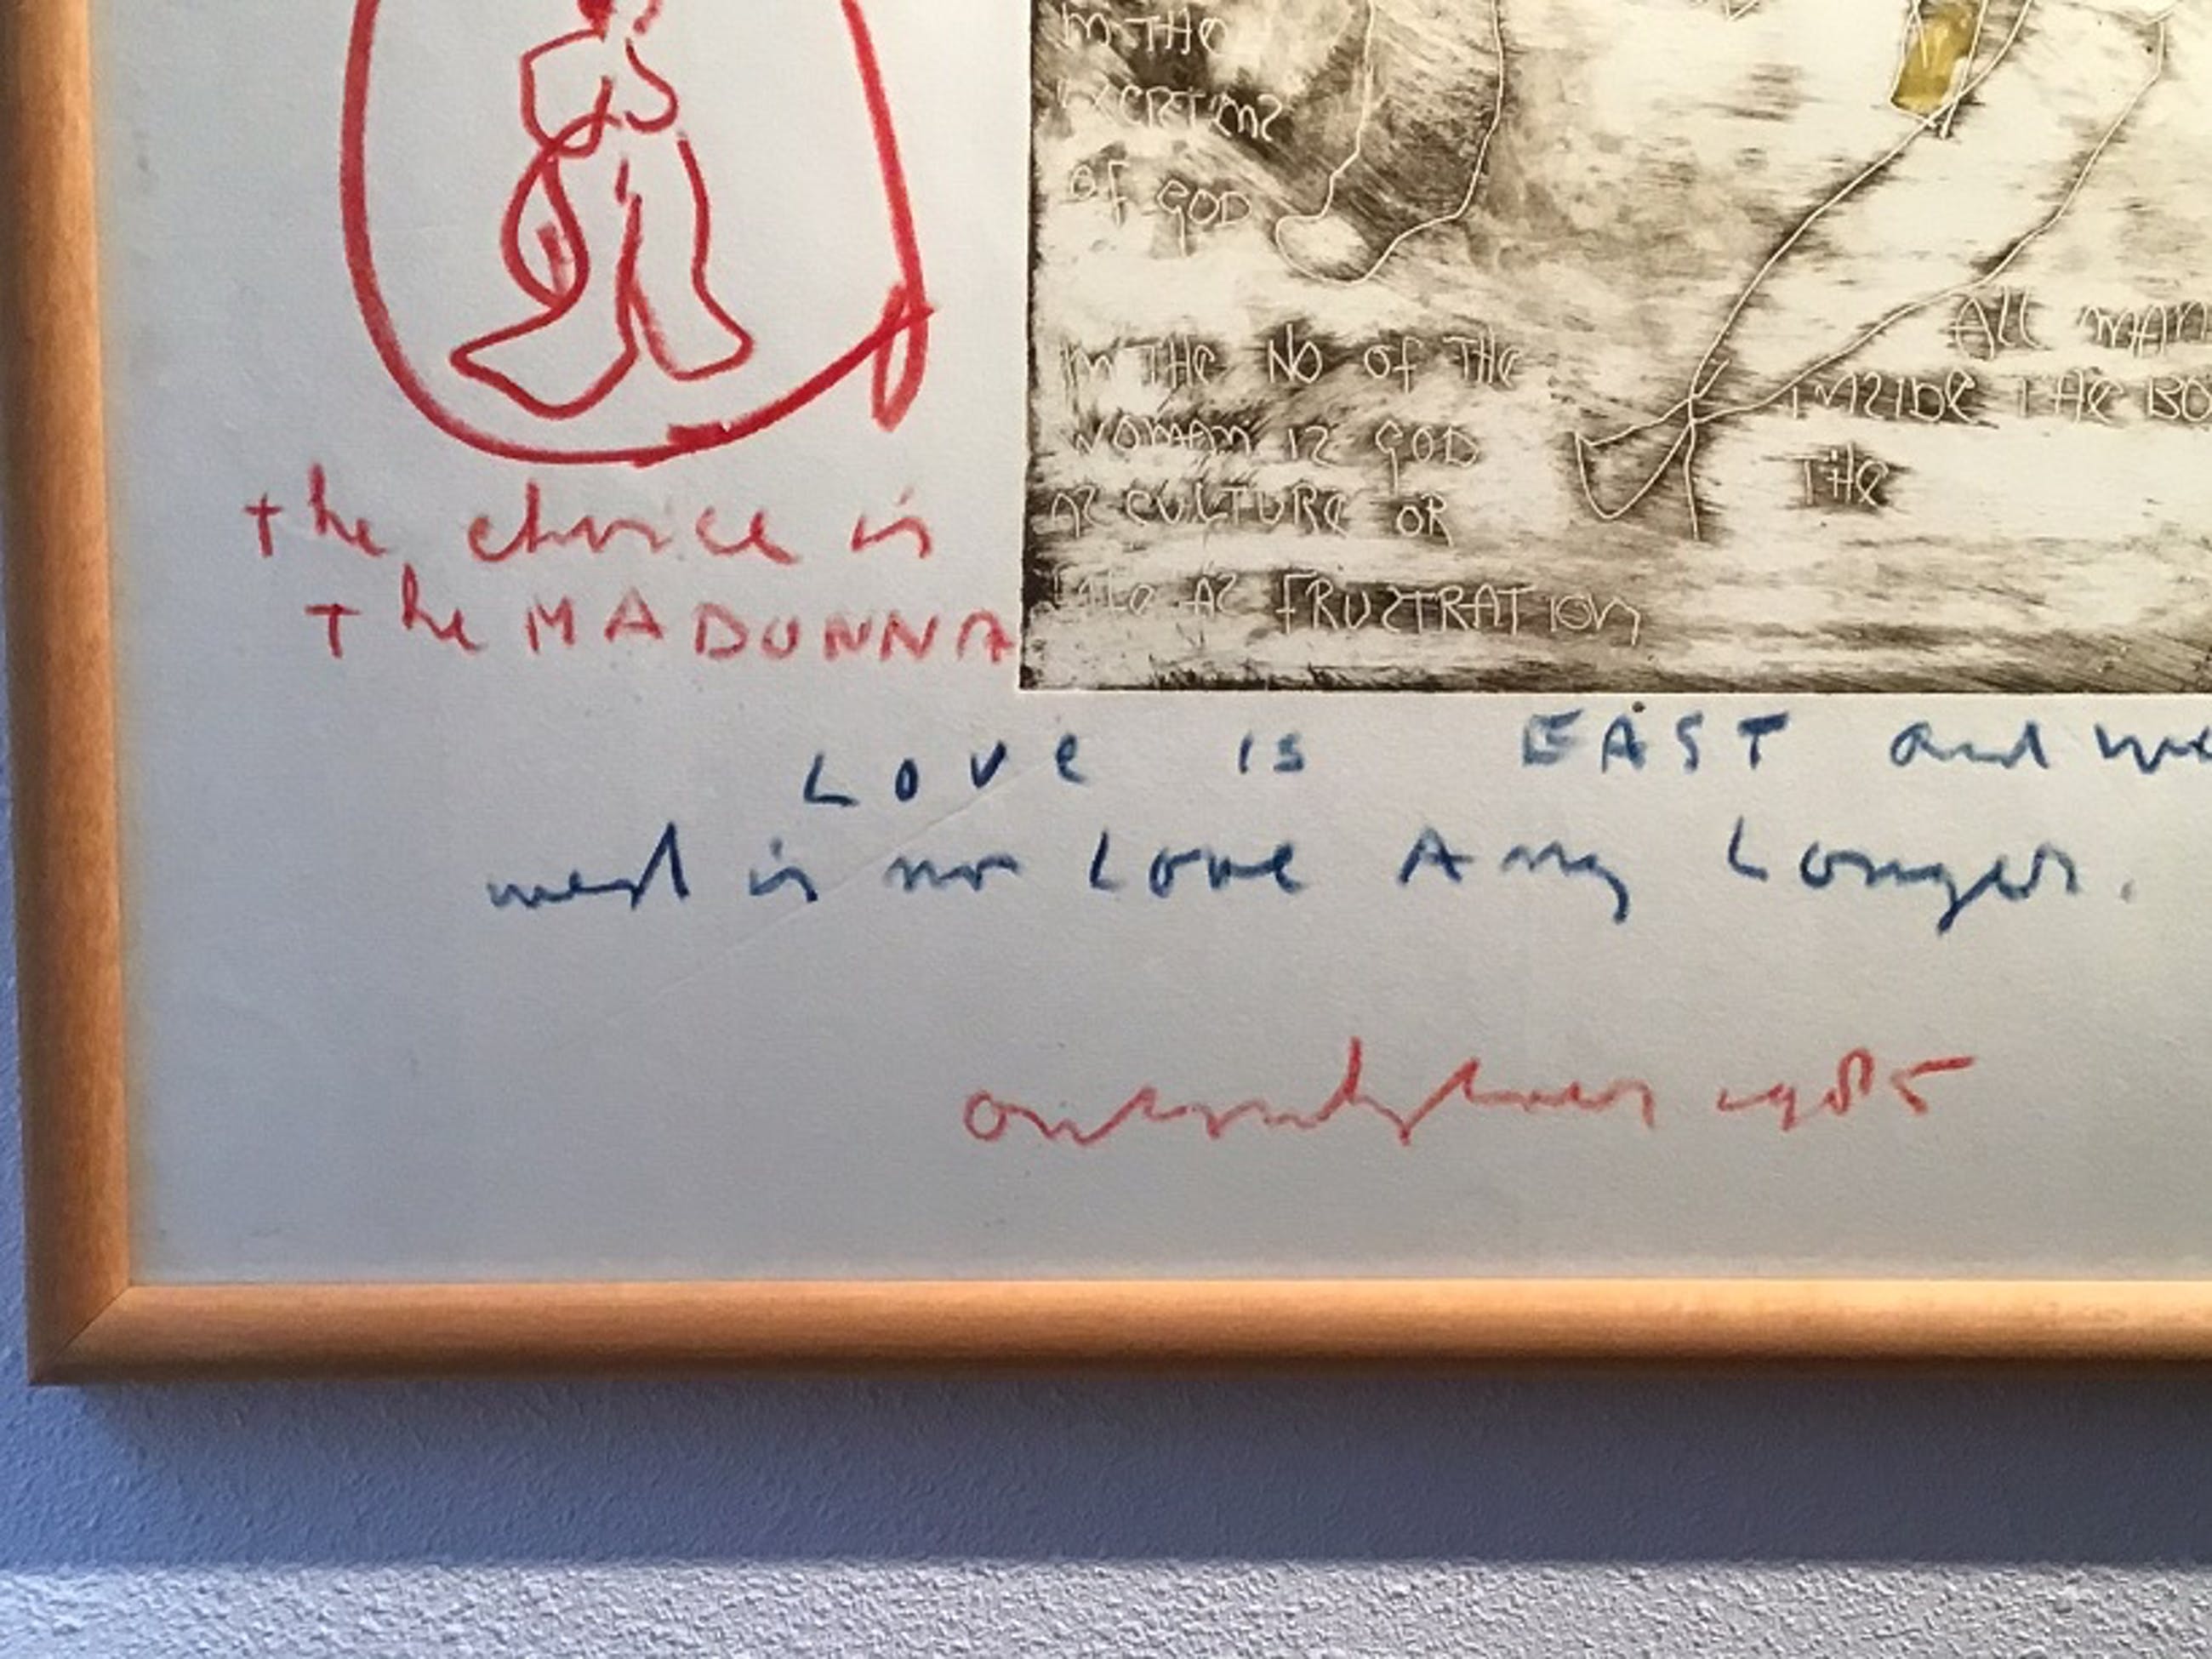 IN THE
OF GOD
IN THE NO OF THE
WOMAN IS GOD
AS CULTURE OR
AS FRUSTRATION
ALL MAN
INSIDE THE BO
THE
the choice is
The MADONNA
LOVe IS EAST and we
west is no Love Any Longer.
1985